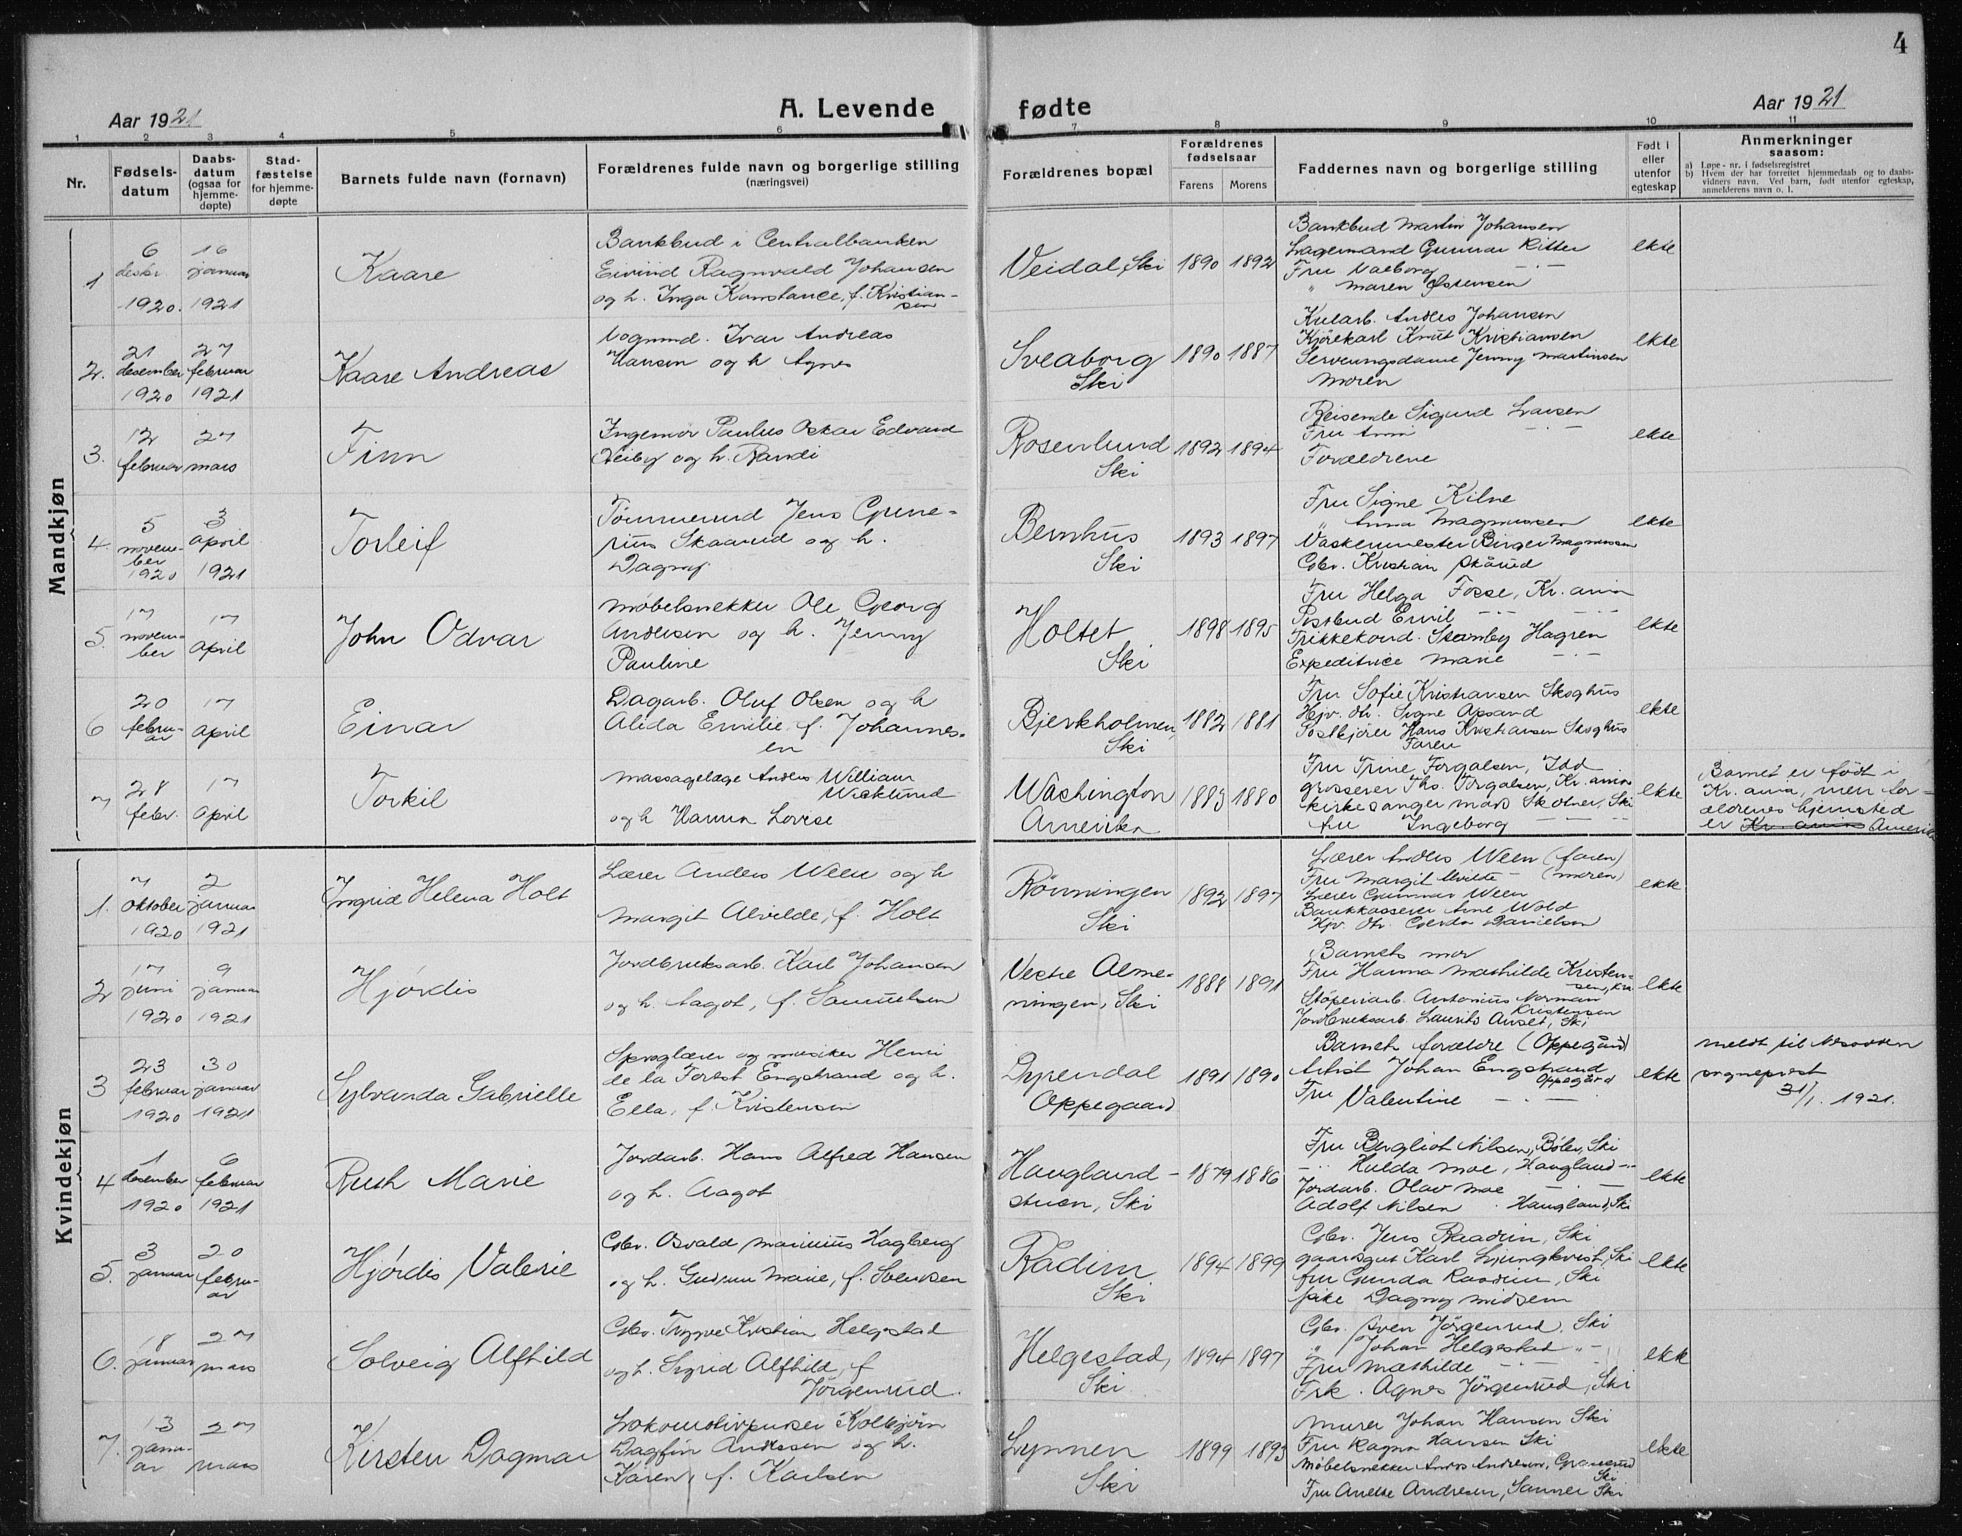 4
Aar 1921
A. Levende fødte
Aar 1921
1 2 3 4 5 6 7 8 9 10 11
Nr.
Fødsels-
datum
Daabs-
datum
(ogsaa for
hjemme-
døpte)
Stad-
fæstelse
for hjemme-
døpte
Barnets fulde navn (fornavn)
Forældrenes fulde navn og borgerlige stilling
(næringsvei)
Forældrenes bopæl
Forældrenes
fødselsaar
Farens Morens
Faddernes navn og borgerlige stilling
Født i
eller
utenfor
egteskap
Anmerkninger
saasom:
a) Løpe-nr. i fødselsregistret
b) Hvem der har forrettet hjemmedaab og to daabs-
vidners navn. Ved barn, født utenfor egteskap,
anmelderens navn o. l.
Mandkjøn
1
6
desbr.
1920.
16
januar
1921
Kaare
Bankbud i Centralbanken
Eivind Ragnvald Johansen
og h. Inga Konstance, f. Kristian-
sen
Veidal, Ski
1890 1892
Bankbud Martin Johansen
Lagermand Gunnar Ritter
Fru Valborg — " —
" Maren Østensen
ekte
2.
21
desember
1920
27
februar
1921
Kaare Andreas
Vognmd. Ivar Andreas
Hansen og h Agnes
Sveaborg
Ski
1890 1887
Kularb. Anders Johansen
Kjørekarl Knut Kristiansen
Serveringsdame Jenny Martinsen
Moren
ekte
3.
12
februar
27
mars
Finn
Ingeniør Paulus Oskar Edvard
Neiby og h. Randi
Rosenlund
Ski
1892 1894
Reisende Sigurd Larsen
Fru Anni — " —
Forældrene
ekte
4.
5
novem-
ber
1920
3
April
1921
Torleif
Tømmermd Jens Grine-
rius Skaarud og h.
Dagny
Bernhus
Ski
1893 1897
Fru Signe Kilne
" Anna Magnussen
Vaskermester Birger Magnussen
Gbr. Kristian Skårud
ekte
5.
17
novem-
ber
17
April
John Odvar
Møbelsnekker Ole Georg
Andersen og h. Jenny
Pauline
Holtet
Ski
1898 1895
Fru Helga Fosse, Kr.ania
Postbud Emil — " —
Trikkekond. Stamby Hagren
Expeditrice Marie — " —
ekte
6
20
febru-
ar
17
April
Einar
Dagarb. Oluf Olsen og h
Alida Emilie, f. Johannes-
en
Bjerkholmen,
Ski
1882 1881
Fru Sofie Kristiansen Skoghus
Hjv. dtr. Signe Apsand
Postkjører Hans Kristiansen Skoghus
Faren
ekte
7
28
febr.
17
April
Torkil
Massagelæge Anders William
Wicklund
og h Hanna Lovise
Washington
Amerika
1883 1880
Fru Trine Torgalsen, Idd
grosserer Ths. Torgalsen, Kr.ania
kirkesanger Mars Skolner, Ski
fru Ingeborg — " —
ekte
Barnet er født i
Kr.ania, men for-
ældrenes hjemsted
er Kr.ania Amerika
Kvindekjøn
1.
7
oktober
1920
2
januar
1921
Ingrid Helena Holt
Lærer Anders Ween og h
Margit Alvilde, f. Holt
Rønningen
Ski
1892 1897
Lærer Anders Ween (faren)
Fru Margit Alvilde — (moren)
Lærer Gunnar Ween
Bankkasserer Arne Wold
Hjv. dtr. Gerda Danielsen
ekte
2
17
juni
1920
9
januar
1921
Hjørdis
Jordbruksarb. Karl Johansen
og h. Aagot, f. Samuelsen
Vestre Alme-
ningen, Ski
1888 1891
Barnets mor
Fru Hanna Mathilde Kristen-
sen, Kra
Støperiarb. Antonius Norman
Kristensen
Jordbruksarb. Laurits Anset, Ski
ekte
3
23
februar
1920
30
januar
1921
Sylvanda Gabrielle
Sproglærer og musiker Henri
de la Forest Engstrand og h.
Ella, f. Kristensen
Dyrendal
Oppegaard
1891 1890
Barnets forældre (Oppegård)
Artist Johan Engstrand
Oppegård
Fru Valentine — " —
ekte
Meldt til Nesodden
sogneprest
31/1. 1921.
4
1
desember
1920
6
februar
1921
Ruth Marie
Jordarb. Hans Alfred Hansen
og h. Aagot
Haugland-
stuen, Ski
1879 1886
Fru Bergliot Nilsen, Bøler, Ski
— " — Hulda Moe, Haugland — " —
Jordarb. Olav Moe — " —
Adolf Nilsen Haugland, Ski
ekte
5.
3
januar
20
febru-
ar
Hjørdis Valerie
Gbr. Osvald Marinius Hagberg
og h. Gudrun Marie, f. Svensen
Rådim
Ski
1894 1899
Gbr. Jens Raadim, Ski
gaardsgut Karl Ljungkvist, Ski
fru Gunda Raadim, Ski
pike Dagny Midsem
ekte
6.
18
januar
27
mars
Solveig Alfhild
Gbr. Trygve Kristian Helgestad
og h. Sigrid Alfhild, f
Jørgenrud.
Helgestad,
Ski
1894 1897
Gbr. Sven Jørgenrud, Ski
" Johan Helgestad — " —
Fru Mathilde — " —
Frk. Agnes Jørgenrud, Ski
ekte
7.
13
janu-
ar
27
mars
Kirsten Dagmar
Lokomotivpusser Kolbjørn
Dagfin Andersen og h.
Karen, f. Karlsen
Lynnen
Ski
1899 1893
Murer Johan Hansen Ski
Fru Ragna Hansen Ski
Møbelsnekker Anders Andresen, Granerud
Ski
Fru Anette Andresen, Sanner Ski
ekte